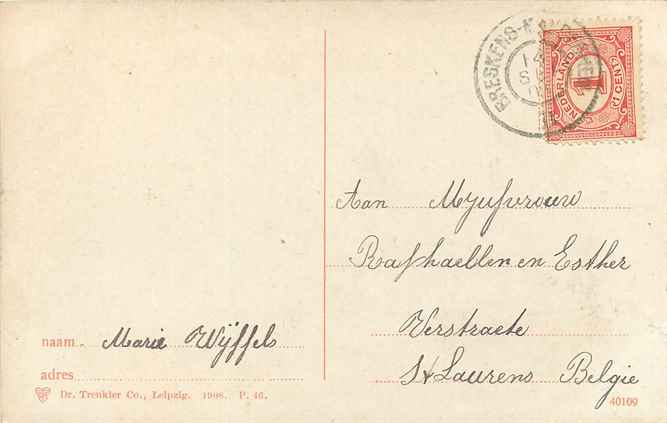 BRESKENS-
14
NEDERLAND
1
1 CENT
Aan Mejufvrouw
Raphaella en Esther
Verstraete
St Laurens Belgie
naam Marie Wÿffels
adres
Dr. Trenkler Co., Leipzig. 1908. P. 46.
40109